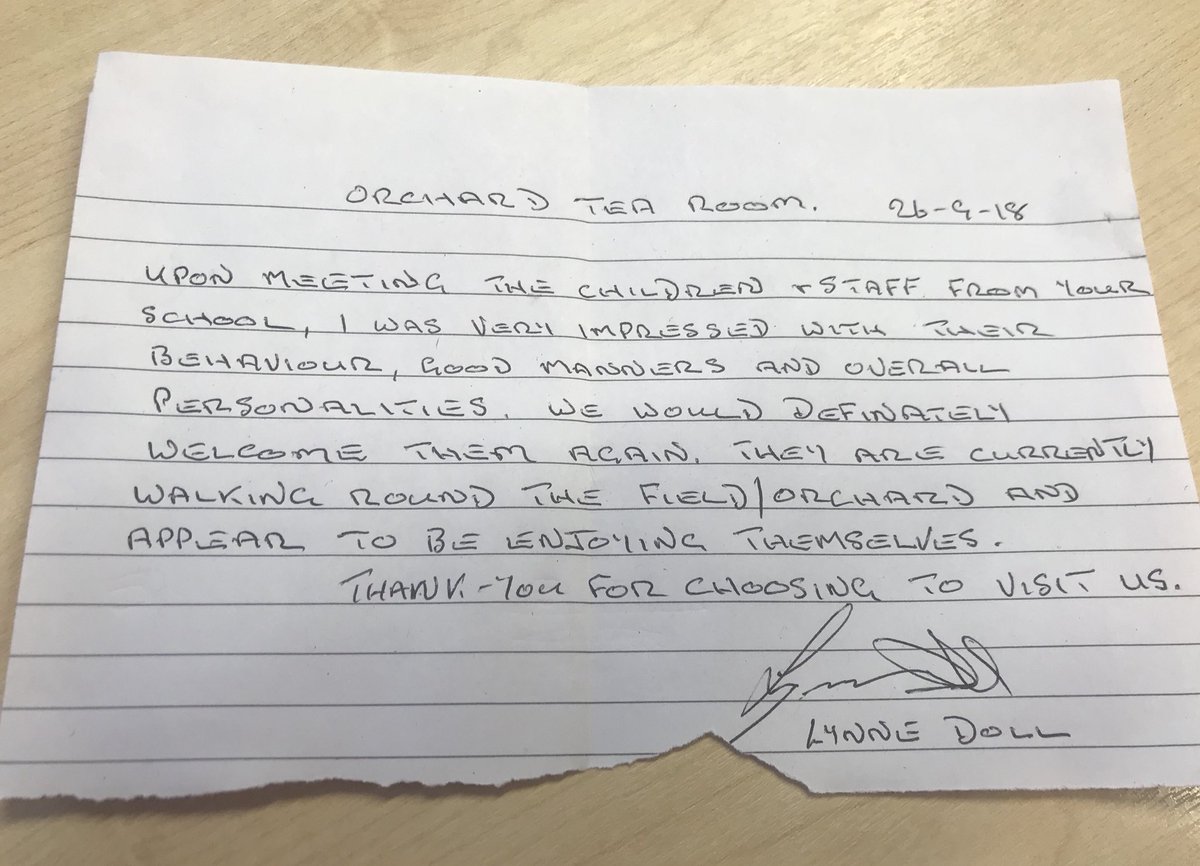 ORCHARD TEA ROOM. 26-9-18
UPON MEETING THE CHILDREN + STAFF FROM YOUR
SCHOOL, I WAS VERY IMPRESSED WITH THEIR
BEHAVIOUR, GOOD MANNERS AND OVERALL
PERSONALITIES. WE WOULD DEFINATELY
WELCOME THEM AGAIN. THEY ARE CURRENTLY
WALKING ROUND THE FIELD/ORCHARD AND
APPEAR TO BE ENJOYING THEMSELVES.
THANK-YOU FOR CHOOSING TO VISIT US.
LYNNE DOLL